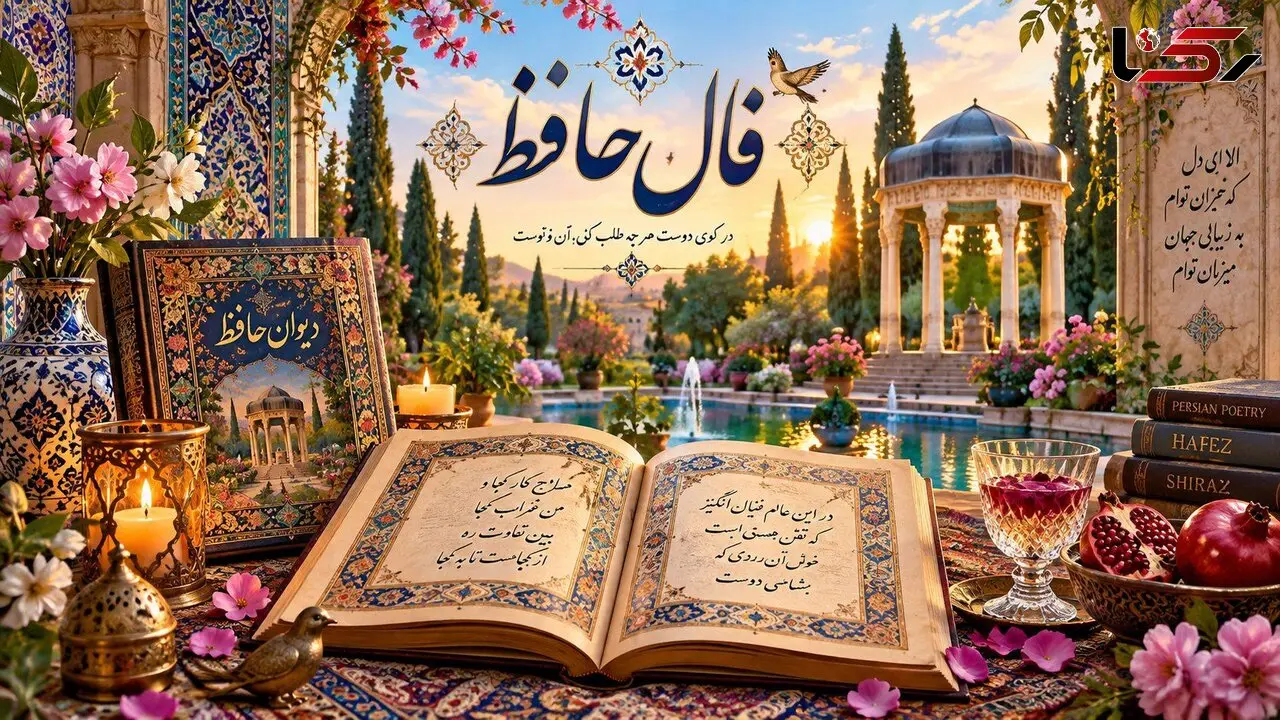 رکنا
فال حافظ
در کوی دوست هر چه طلب کنی، آن توست
الا ای دل
که خیزان توام
به زیبائی جهان
میزبان توام
دیوان حافظ
صلاح کار کجا و
من خراب کجا
ببین تفاوت ره
از کجاست تا به کجا
در این عالم فتان انگیز
که نقش هستی است
خوش آن
بشناسی دوست
PERSIAN POETRY
HAFEZ
SHIRAZ